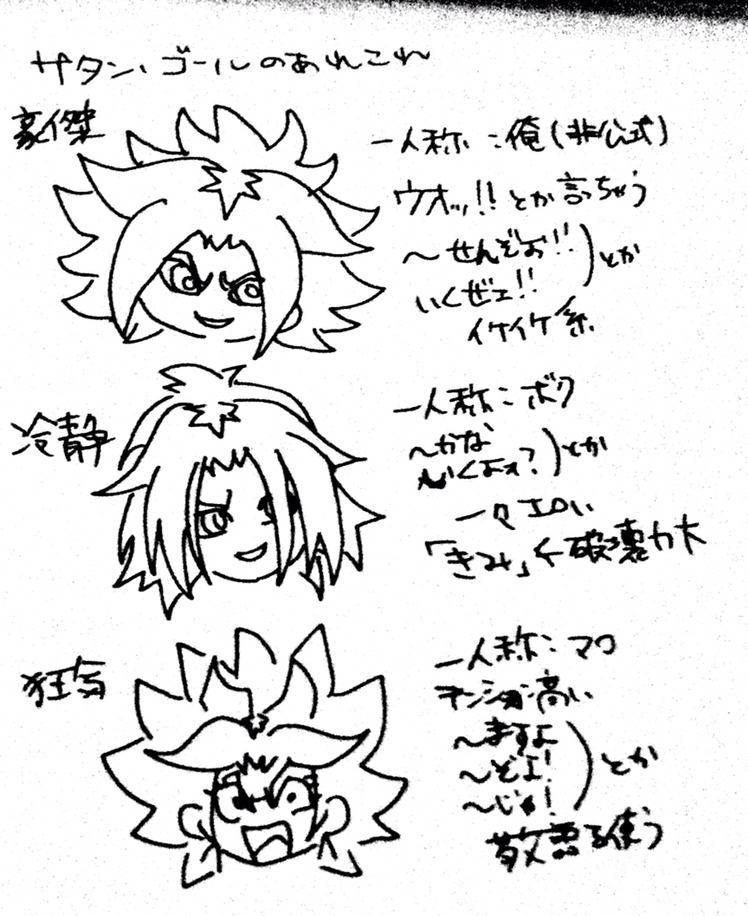 サタン・ゴールのあれこれ
豪傑
一人称：俺(非公式)
ウオッ!!とか言っちゃう
〜せんぞお!!
いくぜェ!!
とか
イケイケ系
冷静
一人称：ボク
〜かな
いくよォ?
とか
一々エロい
「きみ」←破壊力大
狂気
一人称：マロ
テンション高い
〜ますよ
〜ぞよ!
〜じゃ!
とか
敬語を使う